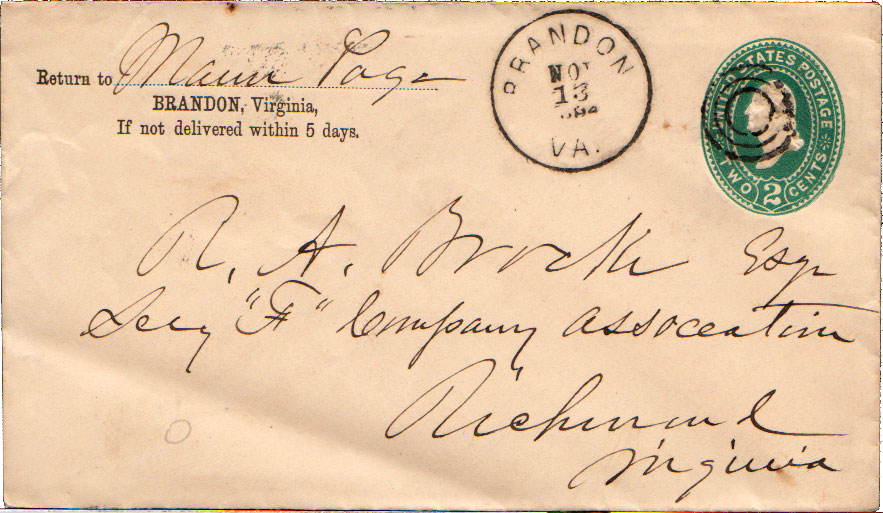 Return to Mann Page
BRANDON, Virginia,
If not delivered within 5 days.
BRANDON
NOV
13
VA.
UNITED STATES POSTAGE
TWO 2 CENTS
R. A. Brock Esqr
Secy "F" Company Association
Richmond
Virginia